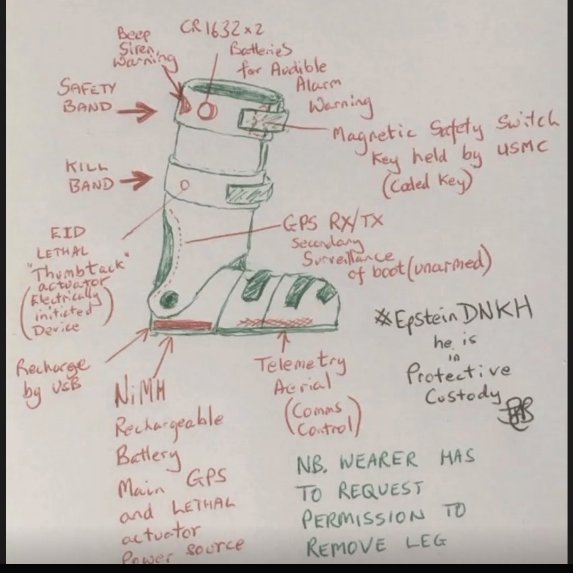 Beep
Siren
Warning
CR1632x2
Batteries
for Audible
Alarm
Warning
SAFETY
BAND
Magnetic Safety Switch
Key held by USMC
(Coded Key)
KILL
BAND
EID
LETHAL
"Thumbtack"
actuator
(Electrically
initiated
Device)
GPS RX/TX
Secondary
Surveillance
of boot (unarmed)
Recharge
by USB
NiMH
Rechargeable
Battery
Main GPS
and LETHAL
actuator
Power source
Telemetry
Aerial
(Comms
Control)
#EpsteinDNKH
he is
in
Protective
Custody
NB. WEARER HAS
TO REQUEST
PERMISSION TO
REMOVE LEG